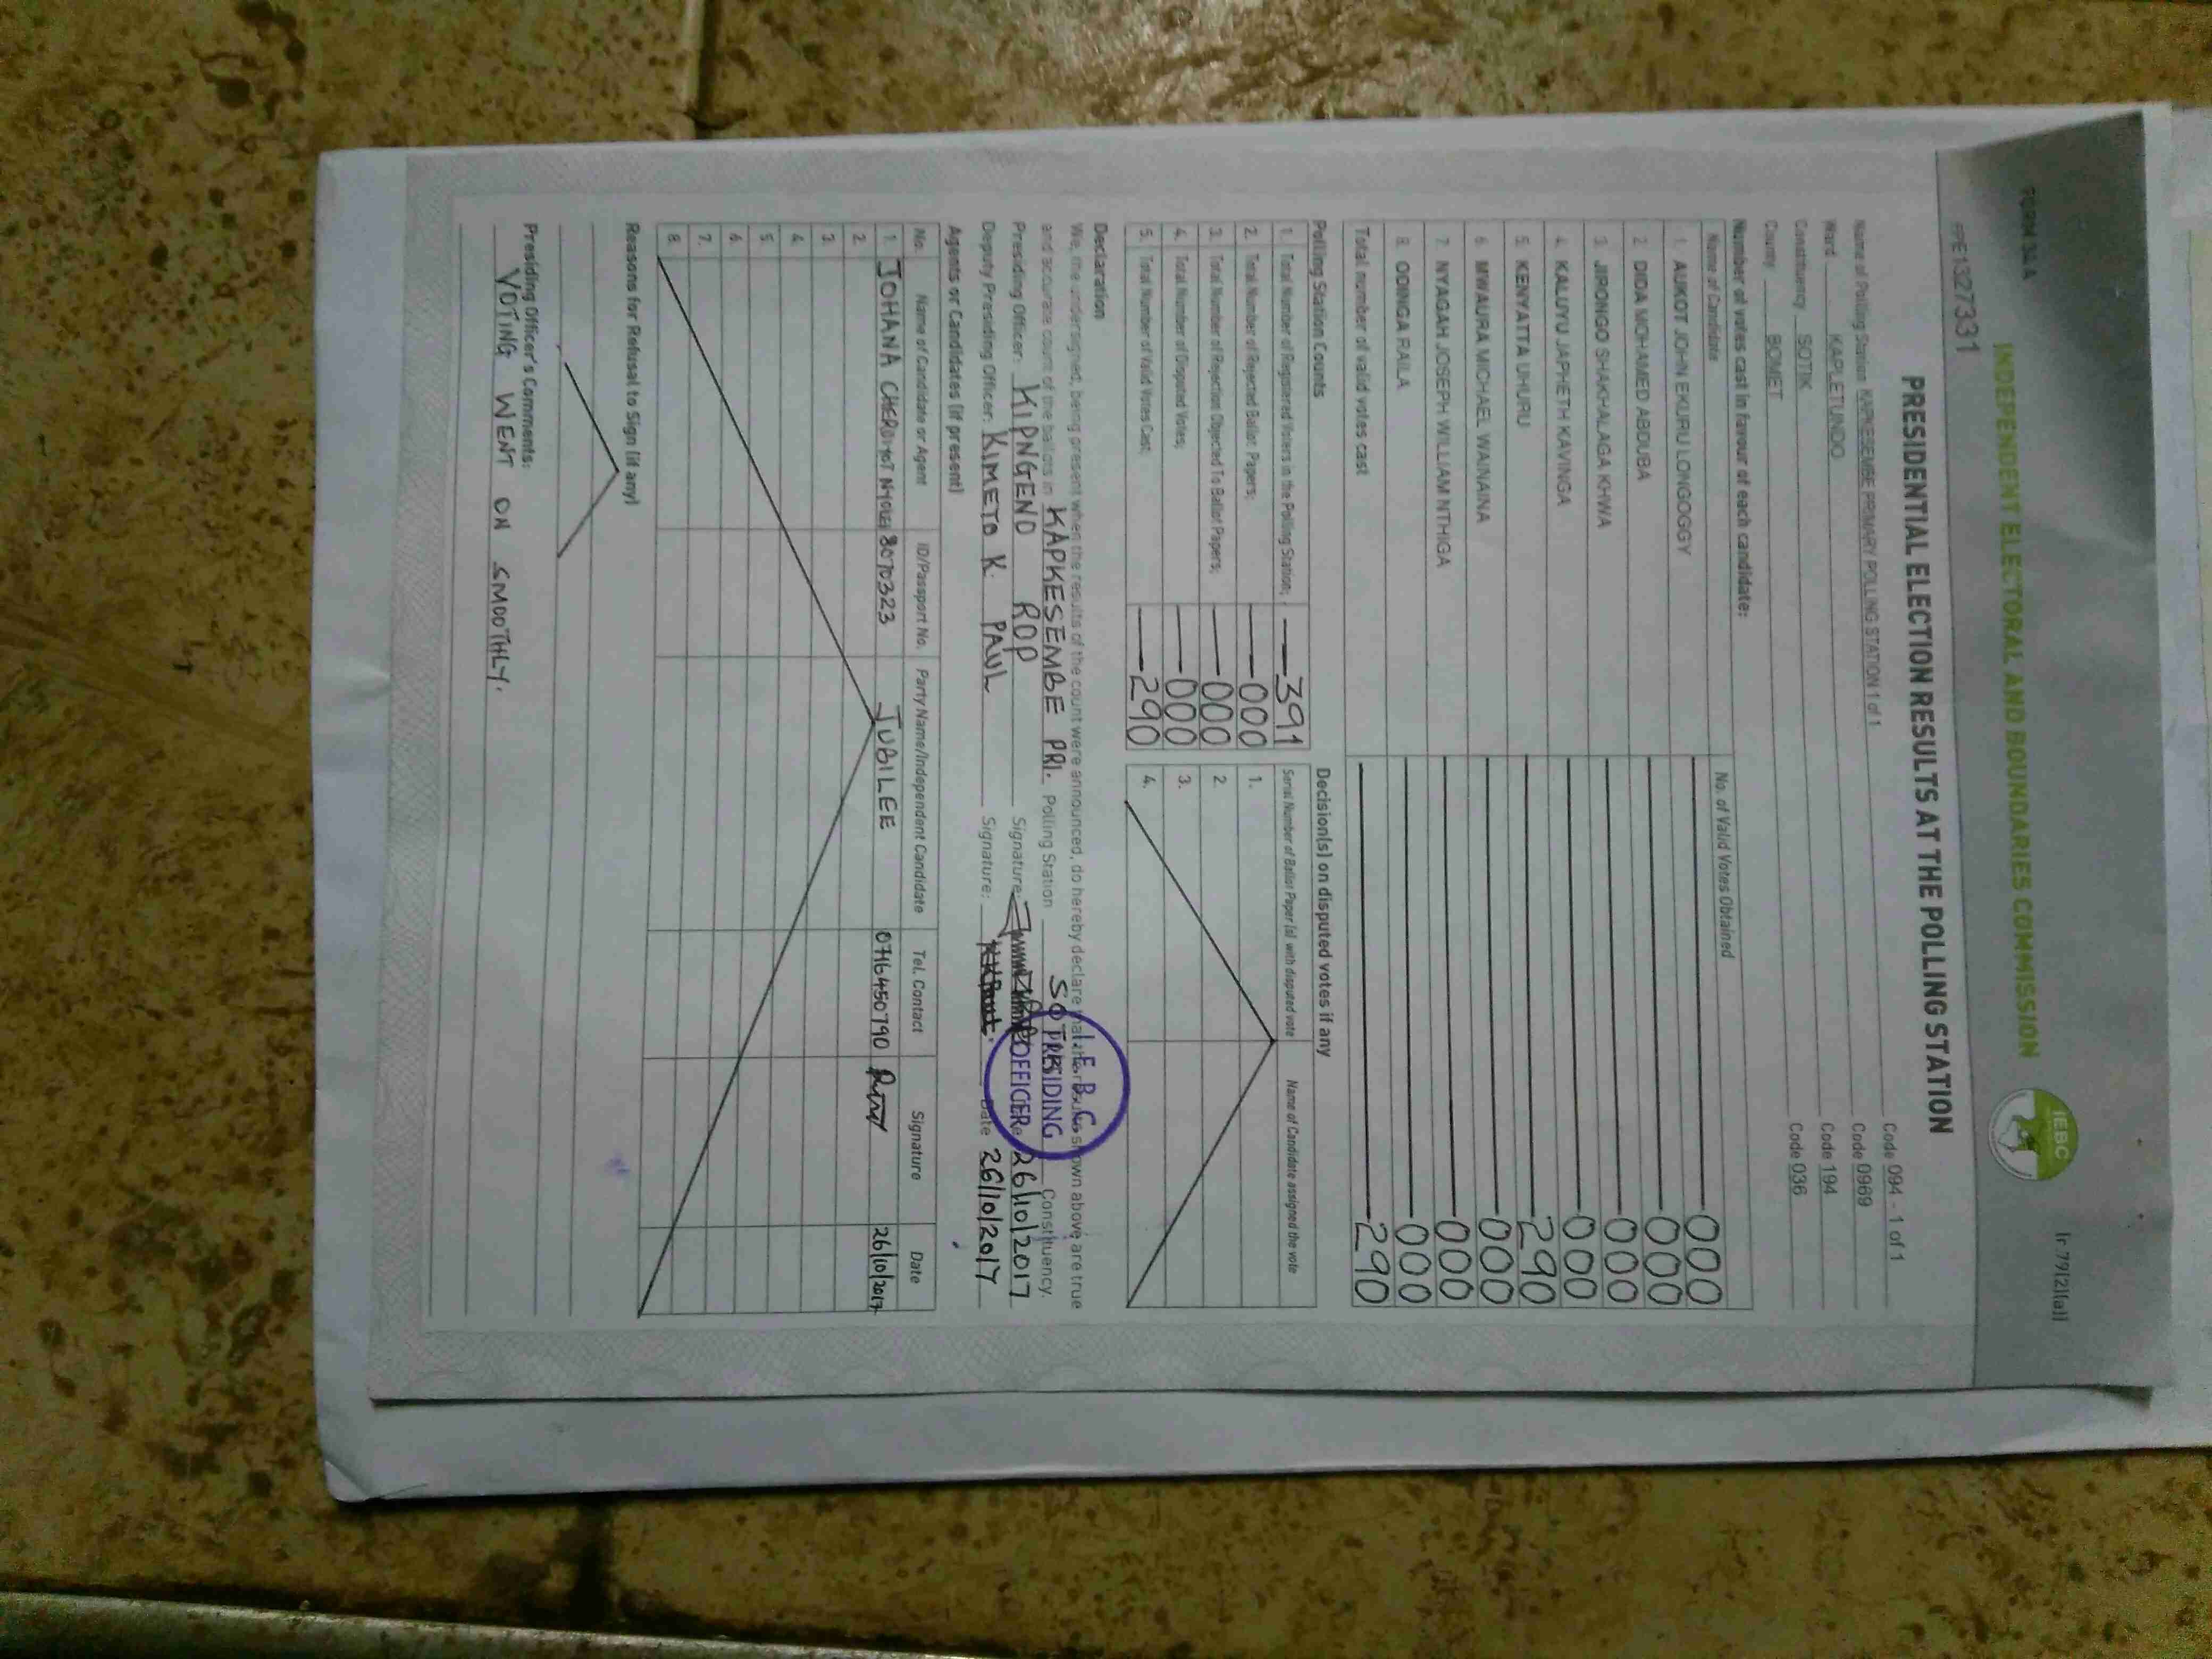 FORM 34A
Ir 79(2)(a)
INDEPENDENT ELECTORAL AND BOUNDARIES COMMISSION
IEBC
PPE1327331
PRESIDENTIAL ELECTION RESULTS AT THE POLLING STATION
Name of Polling Station KAPKESEMBE PRIMARY POLLING STATION 1 of 1 Code 094 - 1 of 1
Ward KAPLETUNDO Code 0969
Constituency SOTIK Code 194
County BOMET Code 036
Number of votes cast in favour of each candidate:
Name of Candidate No. of Valid Votes Obtained
1. AUKOT JOHN EKURU LONGOGGY 000
2. DIDA MOHAMED ABDUBA 000
3. JIRONGO SHAKHALAGA KHWA 000
4. KALUYU JAPHETH KAVINGA 000
5. KENYATTA UHURU 290
6. MWAURA MICHAEL WAINAINA 000
7. NYAGAH JOSEPH WILLIAM NTHIGA 000
8. ODINGA RAILA 000
Total number of valid votes cast 290
Polling Station Counts
1. Total Number of Registered Voters in the Polling Station; 391
2. Total Number of Rejected Ballot Papers; 000
3. Total Number of Rejection Objected To Ballot Papers; 000
4. Total Number of Disputed Votes; 000
5. Total Number of Valid Votes Cast; 290
Decision(s) on disputed votes if any
Serial Number of Ballot Paper (s) with disputed vote Name of Candidate assigned the vote
1.
2.
3.
4.
Declaration
We, the undersigned, being present when the results of the count were announced, do hereby declare that the results shown above are true
and accurate count of the ballots in KAPKESEMBE PRI. Polling Station SOTIK Constituency.
Presiding Officer: KIPNGENO ROP Signature: 26/10/2017
Deputy Presiding Officer: KIMETO K. PAUL Signature: Date 26/10/2017
I.E.B.C
PRESIDING
OFFICER
Agents or Candidates (if present)
No. Name of Candidate or Agent ID/Passport No. Party Name/Independent Candidate Tel. Contact Signature Date
1. JOHANA 8070323 JUBILEE 0716450790 26/10/2017
2.
3.
4.
5.
6.
7.
8.
Reasons for Refusal to Sign (if any)
Presiding Officer's Comments:
VOTING WENT ON SMOOTHLY.